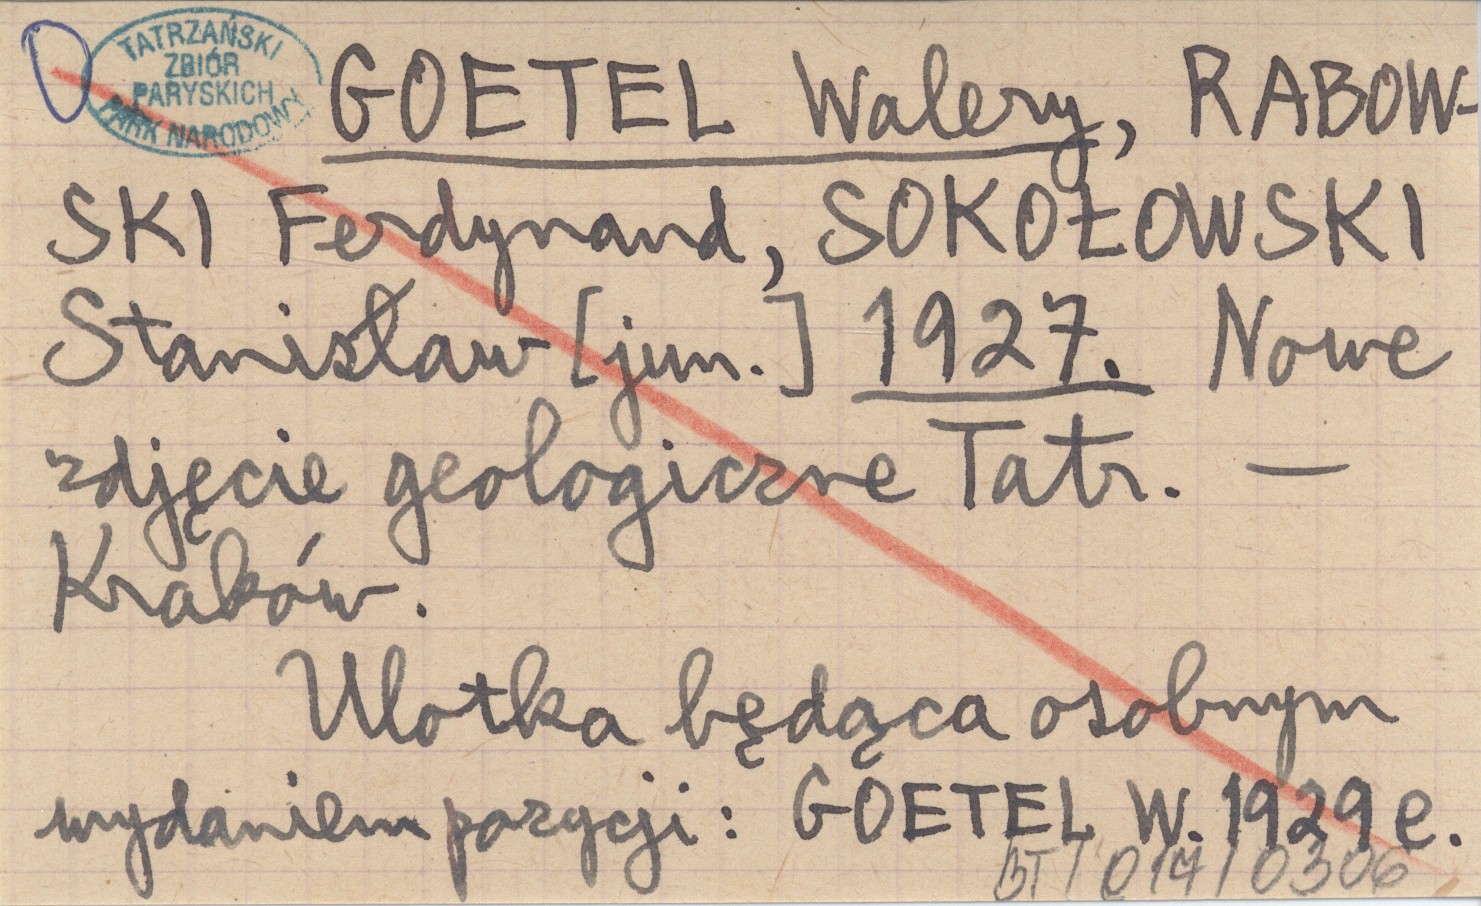 TATRZAŃSKI
ZBIÓR
PARYSKICH
PARK NARODOWY
GOETEL Walery, RABOW-
SKI Ferdynand, SOKOŁOWSKI
Stanisław [jun.] 1927. Nowe
zdjęcie geologiczne Tatr. —
Kraków.
Ulotka będąca osobnym
wydaniem pozycji: GOETEL W. 1929 e.
BT/014/0306